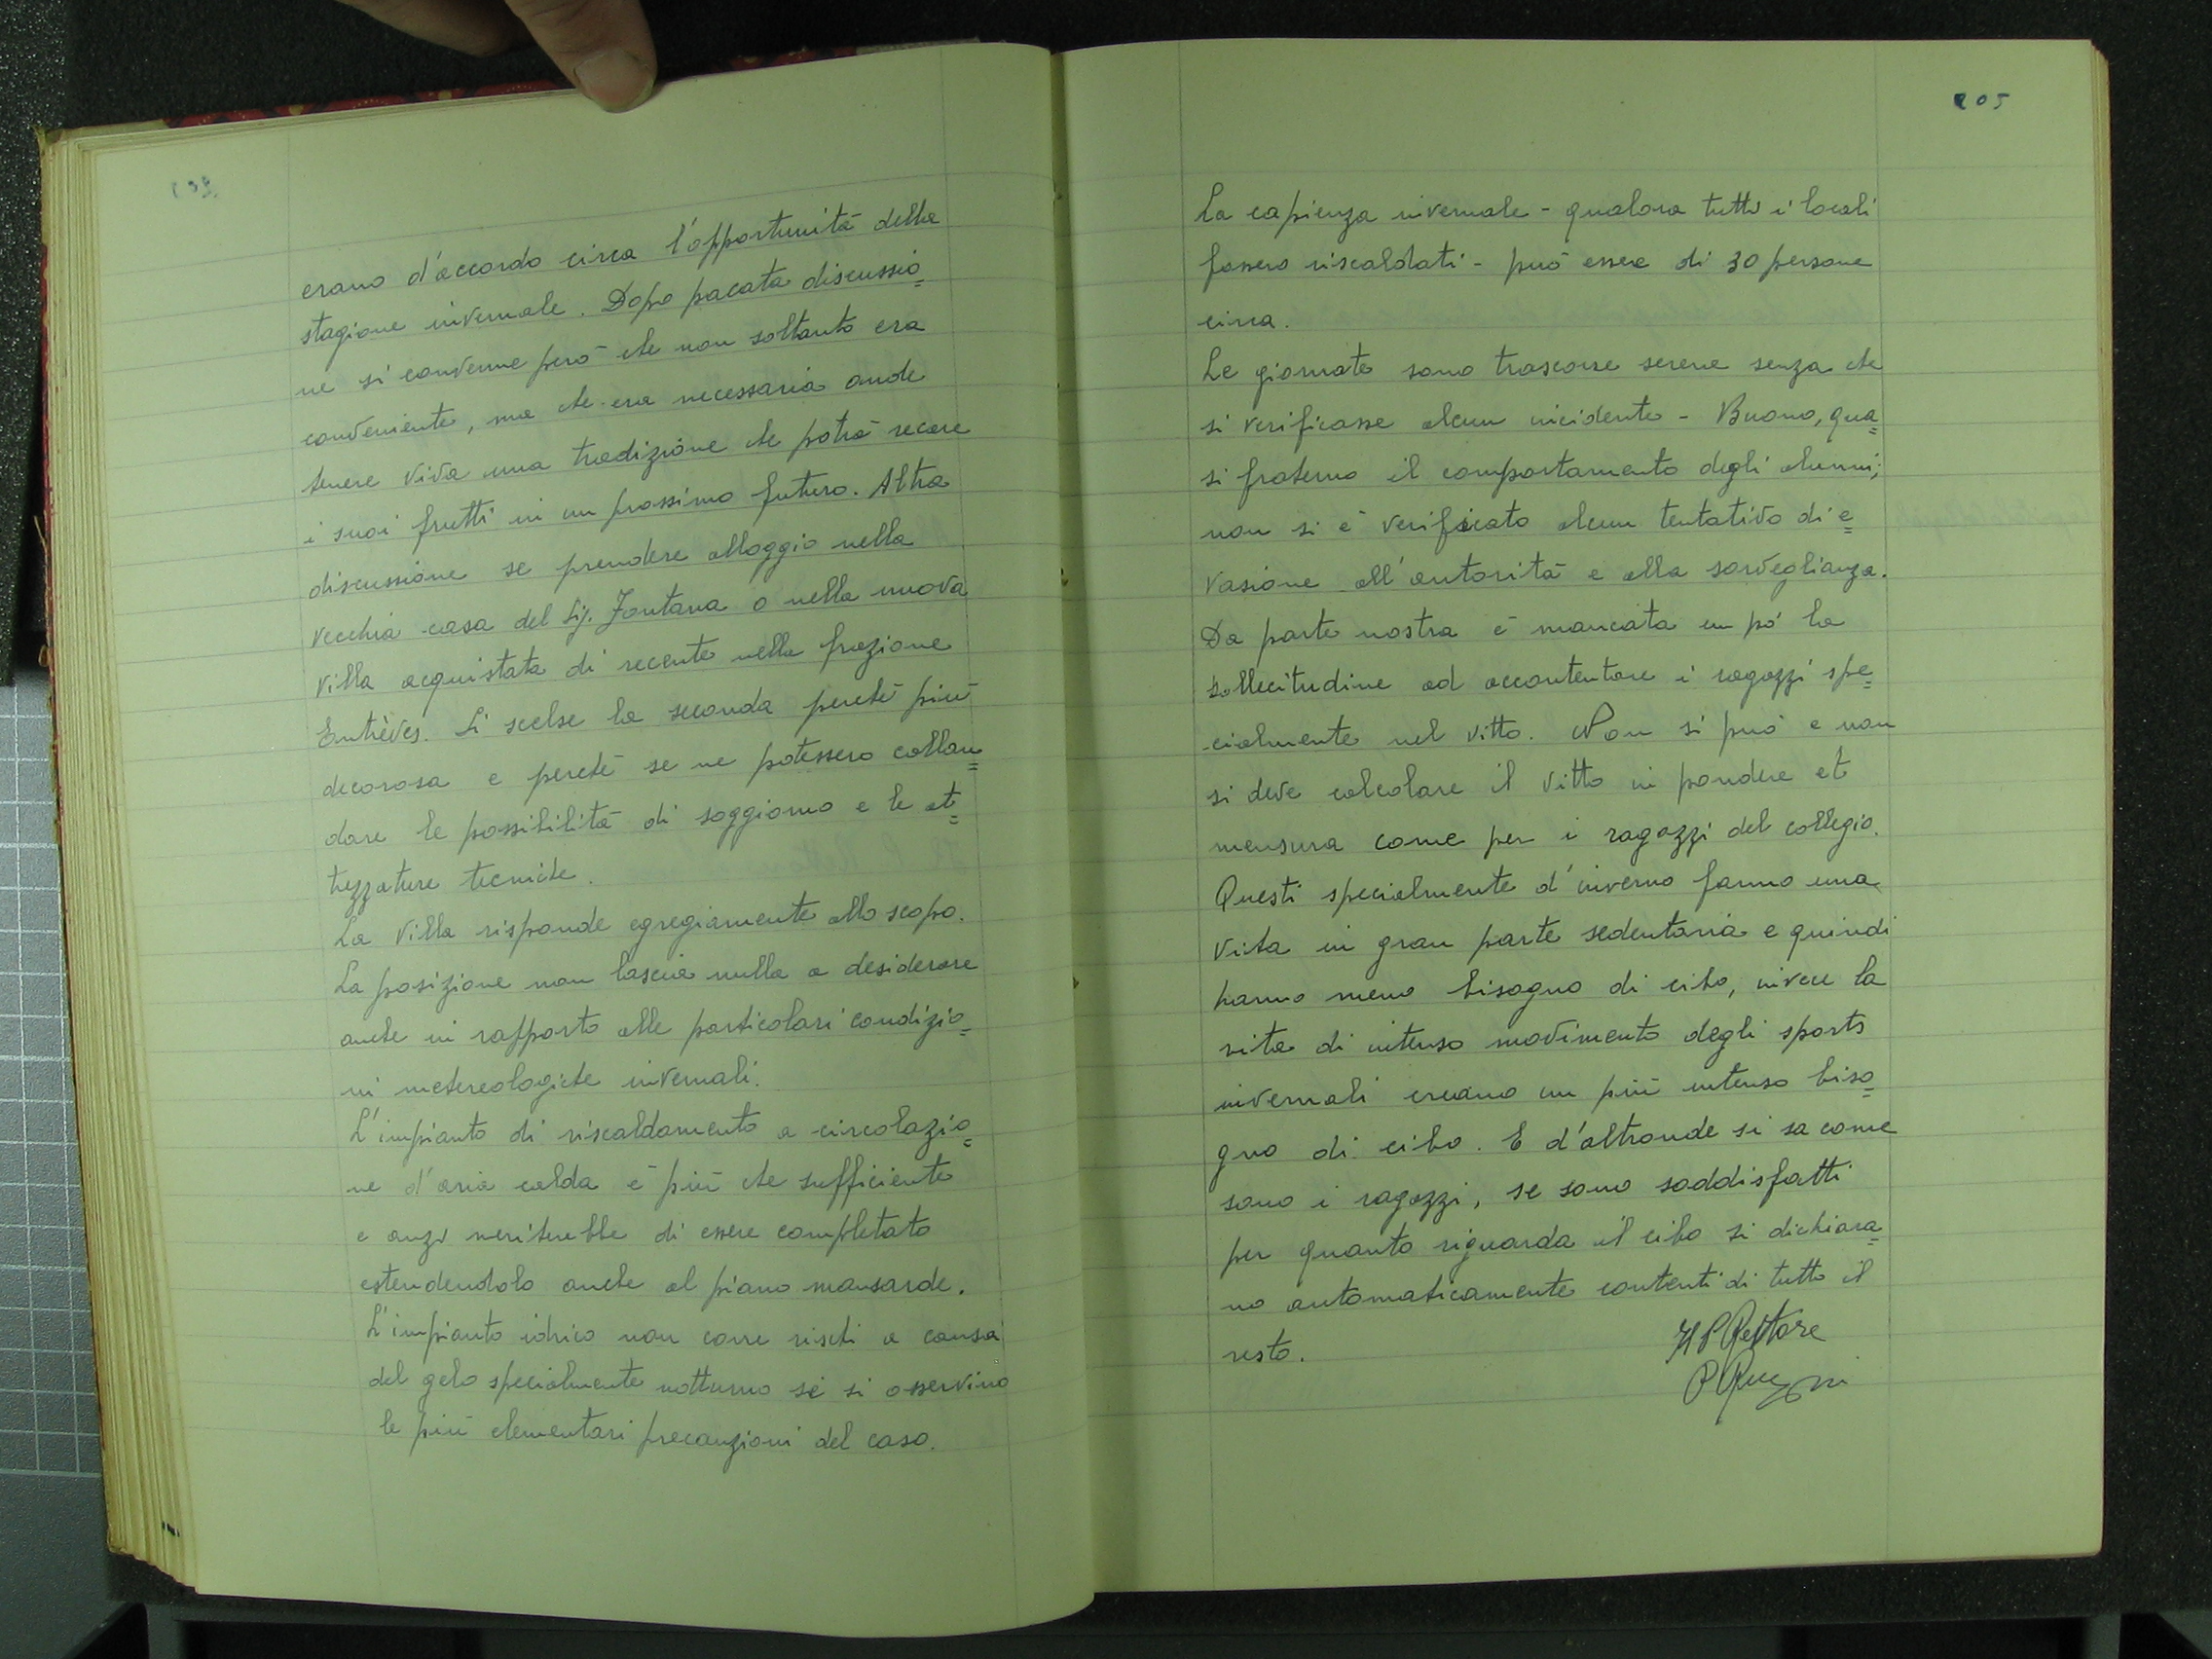 erano d'accordo circa l'opportunità della
stagione invernale. Dopo pacata discussio=
ne si convenne però che non soltanto era
conveniente, ma che era necessaria onde
tenere viva una tradizione che potrà recare
i suoi frutti in un prossimo futuro. Altra
discussione se prendere alloggio nella
vecchia casa del Sig. Fontana o nella nuova
villa acquistata di recente nella frazione
Entrèves. Si scelse la seconda perché più
decorosa e perché se ne potessero collau=
dare le possibilità di soggiorno e le at=
trezzature tecniche.
La villa risponde egregiamente allo scopo.
La posizione non lascia nulla a desiderare
anche in rapporto alle particolari condizio=
ni metereologiche invernali.
L'impianto di riscaldamento a circolazio=
ne d'aria calda è più che sufficiente
e anzi meriterebbe di essere completato
estendendolo anche al piano mansarde.
L'impianto idrico non corre rischi a causa
del gelo specialmente notturno se si osservino
le più elementari precauzioni del caso.
205
La capienza invernale - qualora tutti i locali
fossero riscaldati - può essere di 30 persone
circa.
Le giornate sono trascorse serene senza che
si verificasse alcun incidente - Buono, qua=
si fraterno il comportamento degli alunni;
non si è verificato alcun tentativo di e=
vasione all'autorità e alla sorveglianza.
Da parte nostra è mancata un pò la
sollecitudine ad accontentare i ragazzi spe=
cialmente nel vitto. Non si può e non
si deve calcolare il vitto in pondere et
mensura come per i ragazzi del collegio.
Questi specialmente d'inverno fanno una
vita in gran parte sedentaria e quindi
hanno meno bisogno di cibo, invece la
vita di intenso movimento degli sports
invernali creano un più intenso biso=
gno di cibo. E d'altronde si sa come
sono i ragazzi, se sono soddisfatti
per quanto riguarda il cibo si dichiara=
no automaticamente contenti di tutto il
resto.
Il P. Rettore